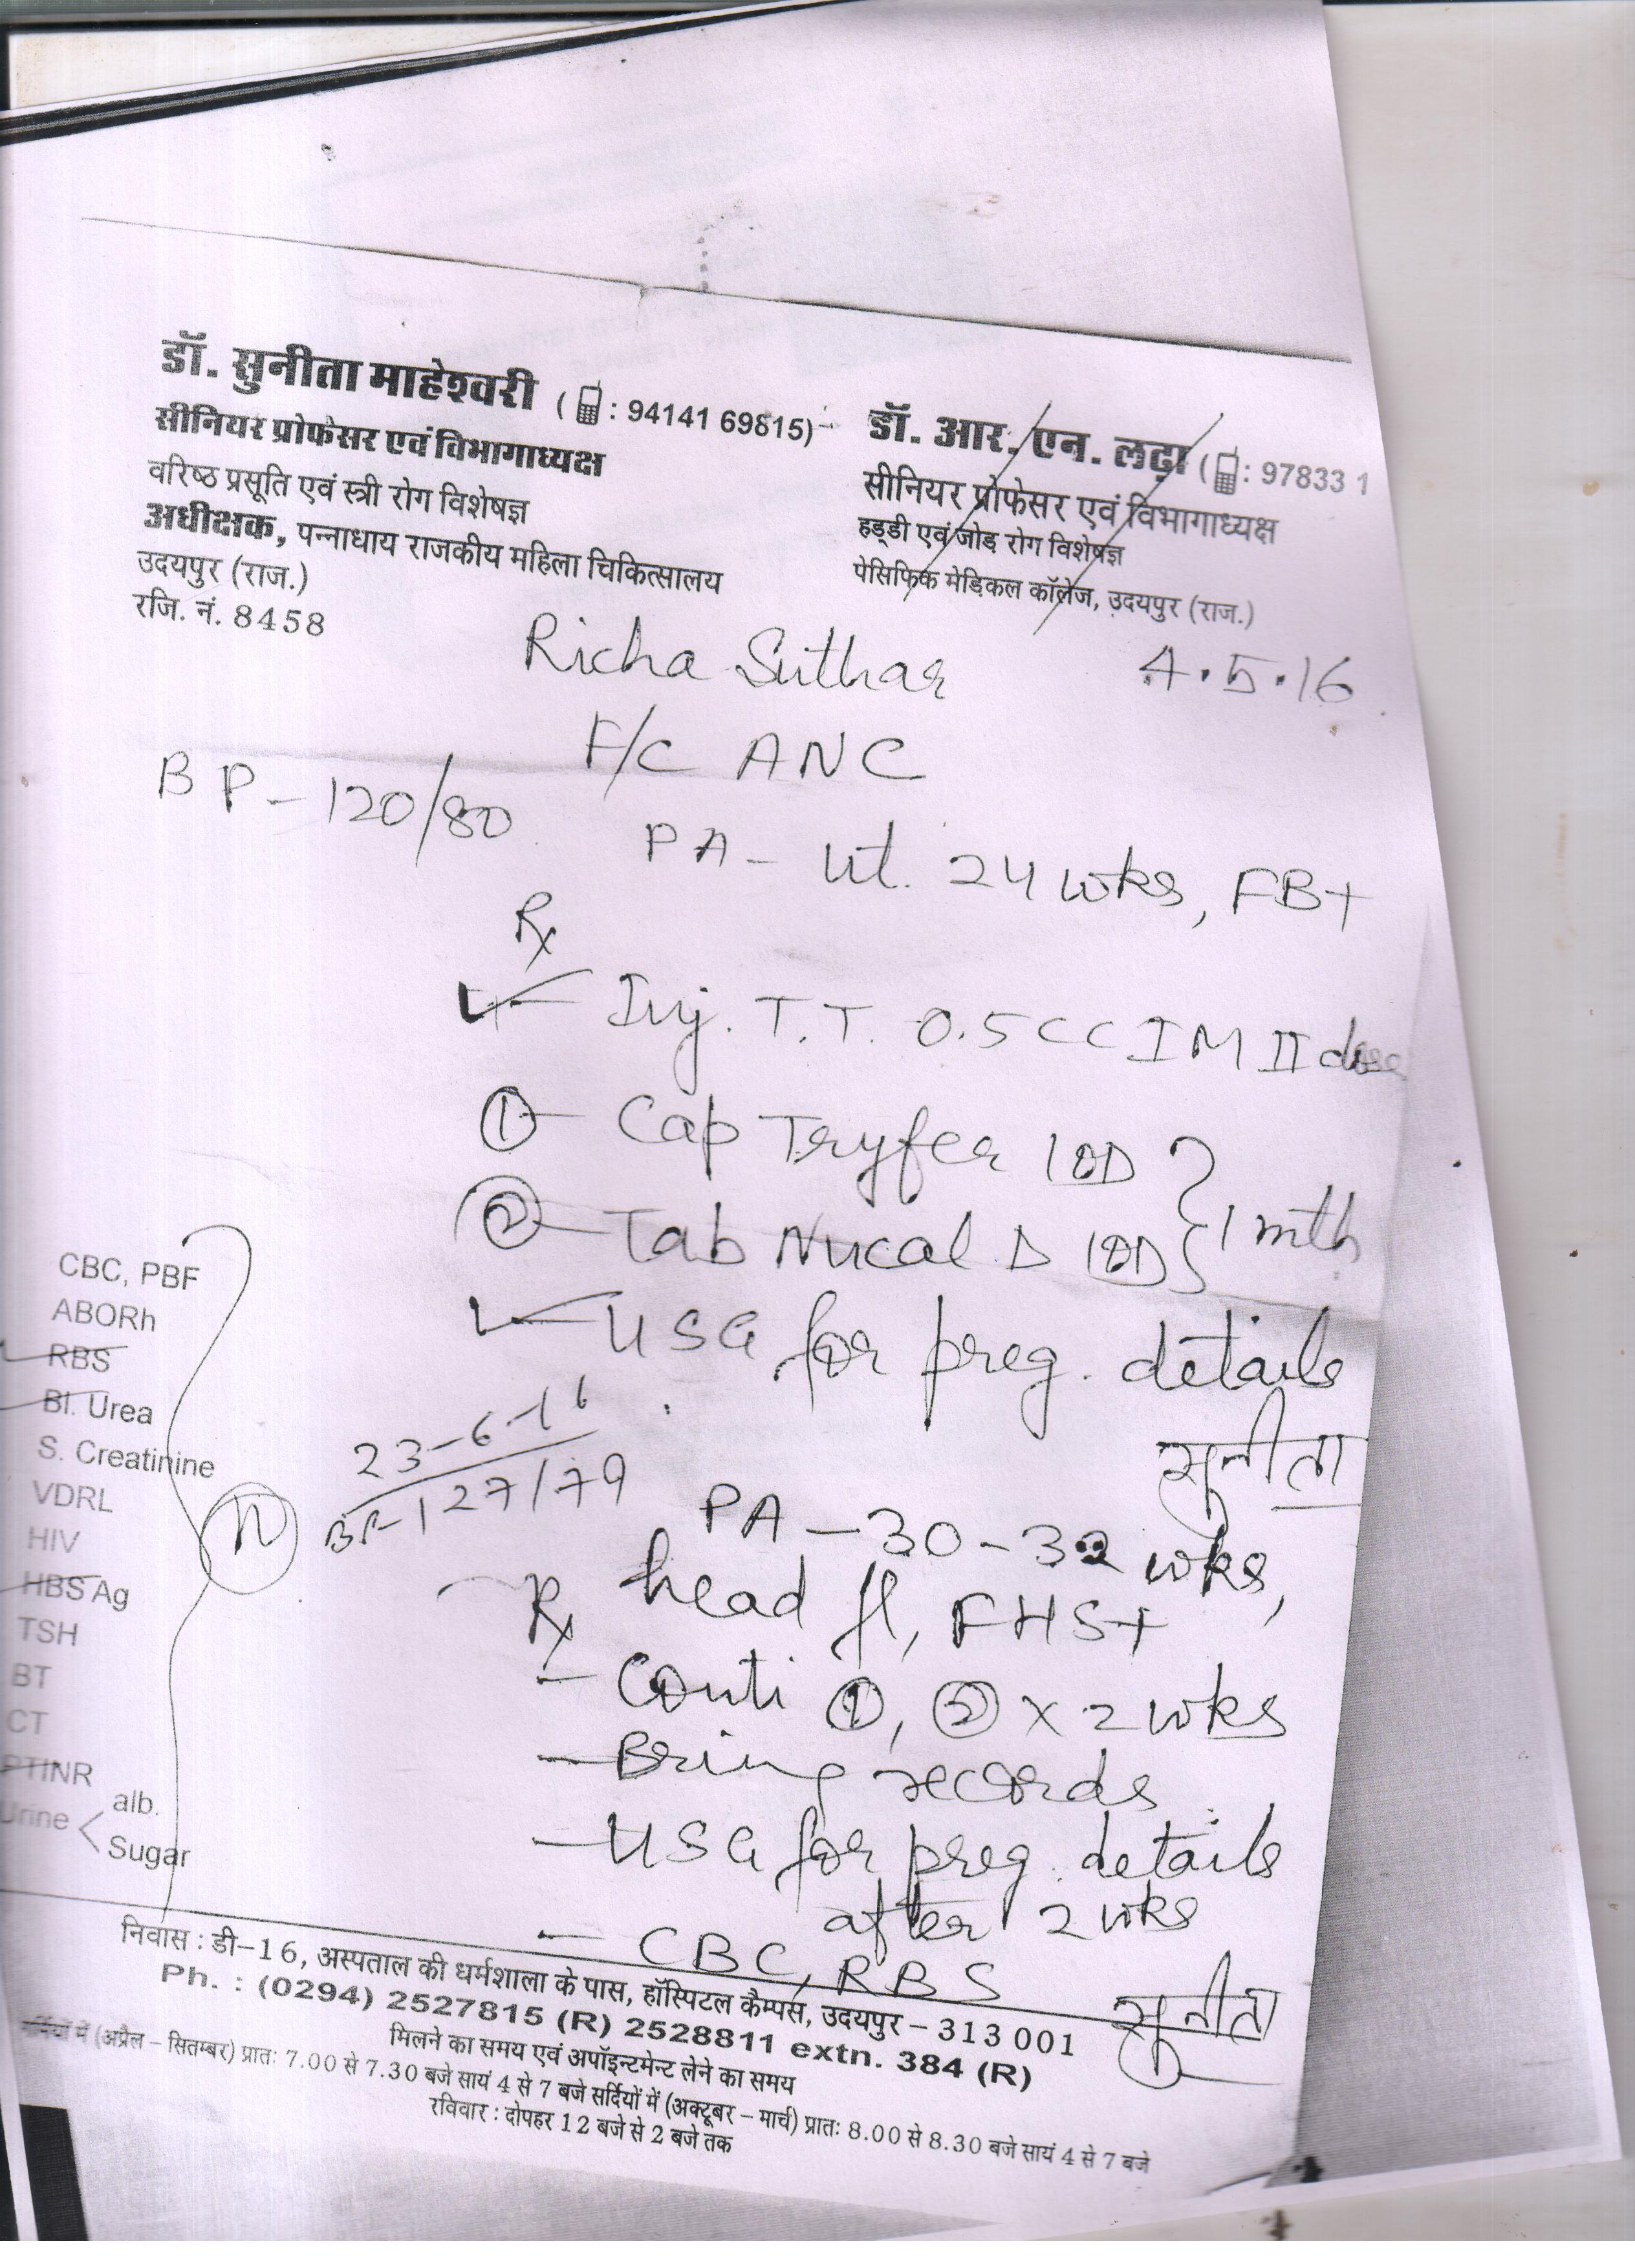 डॉ. सुनीता माहेश्वरी (: 94141 69815)
सीनियर प्रोफेसर एवं विभागाध्यक्ष
वरिष्ठ प्रसूति एवं स्त्री रोग विशेषज्ञ
अधीक्षक, पन्नाधाय राजकीय महिला चिकित्सालय
उदयपुर (राज.)
रजि. नं. 8458
डॉ. आर. एन. लढ़ा (: 97833 1
सीनियर प्रोफेसर एवं विभागाध्यक्ष
हड्डी एवं जोड़ रोग विशेषज्ञ
पेसिफिक मेडिकल कॉलेज, उदयपुर (राज.)
Richa Suthar
4.5.16
F/C ANC
BP - 120/80
PA - Ut. 24 wks, FB+
Rx
Inj. T.T. 0.5 CC IM II dose
① Cap Tryfer 1 OD
② Tab Nucal D 1 OD } 1 mth
USG for preg. details
सुनीता
CBC, PBF
ABORh
RBS
Bl. Urea
S. Creatinine
VDRL
HIV
HBS Ag
TSH
BT
CT
PTINR
Urine < alb.
Sugar
N
23-6-16
BP-127/79
PA - 30-32 wks,
head fl, FHS+
Rx
- Conti ①, ② x 2 wks
- Bring records
- USG for preg. details
after 2 wks
- CBC, RBS
सुनीता
निवास : डी-16, अस्पताल की धर्मशाला के पास, हॉस्पिटल कैम्पस, उदयपुर - 313 001
Ph. : (0294) 2527815 (R) 2528811 extn. 384 (R)
मिलने का समय एवं अपॉइन्टमेन्ट लेने का समय
गर्मियों में (अप्रैल - सितम्बर) प्रातः 7.00 से 7.30 बजे सायं 4 से 7 बजे सर्दियों में (अक्टूबर - मार्च) प्रातः 8.00 से 8.30 बजे सायं 4 से 7 बजे
रविवार : दोपहर 12 बजे से 2 बजे तक